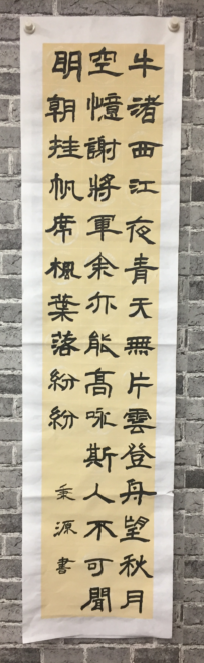 牛渚西江夜青天無片雲登舟望秋月
空憶謝將軍余亦能高咏斯人不可聞
明朝挂帆席楓葉落紛紛
秉源書